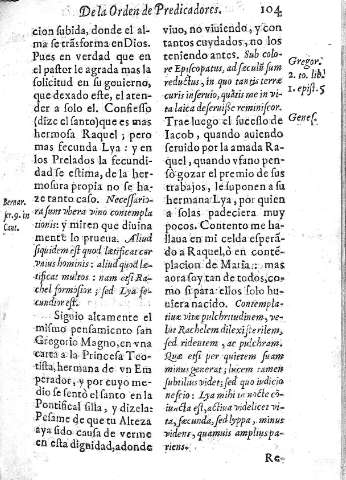 De la Orden de Predicadores. 104
cion subida, donde el al-
ma se trãsforma en Dios.
Pues en verdad que en
el pastor le agrada mas la
solicitud en su gouierno,
que dexado este, el aten-
der a solo el. Confiesso
(dize el santo) que es mas
hermosa Raquel; pero
mas fecunda Lya: y en
los Prelados la fecundi-
dad se estima, de la her-
mosura propia no se ha-
ze tanto caso. Necessario-
ra sunt vbera vino contempla-
tionis: y miren que diuina
mente lo prueua. Aliud
siquidem est quod lætificat cor
vnius hominis: aliud quod læ-
tificat multos: nam etsi Ra-
chel formosior: sed Lya fe-
cundior est.
Siguio altamente el
mismo pensamiento san
Gregorio Magno, en vna
carta a la Princesa Teo-
tista, hermana de vn Em
perador, y por cuyo me-
dio se sentò el santo en la
Pontifical silla, y dizela:
Pesame de que tu Alteza
aya sido causa de verme
en esta dignidad, adonde
Bernar.
ser. 9. in
Cant.
viuo, no viuiendo, y con
tantos cuydados, no los
teniendo antes. Sub colo-
re Episcopatus, ad seculũ sum
reductus, in quo tantis terræ
curis inseruio, quãtis me in vi-
ta laica deseruisse reminiscor.
Trae luego el sucesso de
Iacob, quando auiendo
seruido por la amada Ra
quel, quando vfano pen-
sò gozar el premio de sus
trabajos, le suponen a su
hermana Lya, por quien
a solas padeciera muy
pocos. Contento me ha-
llaua en mi celda esperã-
do a Raquel, ò en conté-
placion de Maria: mas
aora soy tan de todos, co-
mo si para ellos solo hu
uiera nacido. Contempla-
tiuæ vitæ pulchritudinem, ve-
lut Rachelem dilexi sterilem,
sed videntem, ac pulchram.
Quæ etsi per quietem suam
minus generat; lucem tamen
subtilius videt; sed quo iudicio
nescio: Lya mihi in nocte cõ-
iuncta est, actiua videlicet vi-
ta, fœcunda, sed lyppa, minus
videns, quamuis amplius pa-
riens.
Gregor.
2. to. lib.
1. epist. 5
Genes.
Re-